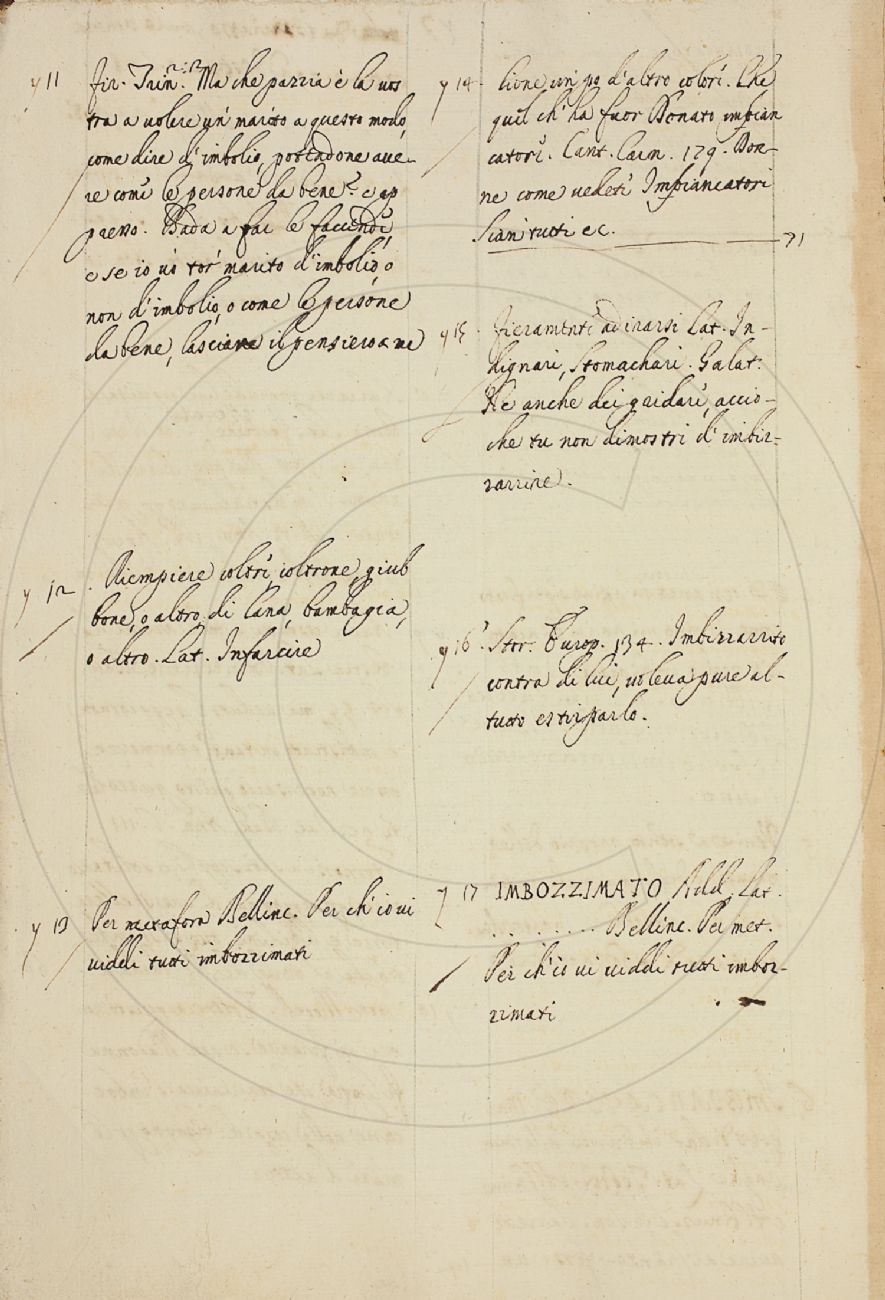 y 11 Fir. Trin. 2. 2. Ma che pazzia è la vos
tra a volere un marito a questo modo,
come dire d'imbolio, potendone ave-
re come le persone da bene? e ap
presso. Bada a far le faccende,
e se io vo tor marito d'imbolio, o
non d'imbolio, o come le persone
da bene, lasciane il pensiero a me
y 12 . Riempiere coltre, coltrone, giub
bone, o altro di lana, bambagia,
o altro. Lat. Infarcire
y 13 Per metafora Bellinc. Per ch'io vi
viddi tutti imbozzimati
y 14 lione un po d'altro colore. Che
quel ch'ha fuor Donato imbian
catore. Cant. Carn. 179. Don-
ne come vedete Imbiancatori
Sian tutti ec.
y 15 . Fieramente adirarsi Lat. In-
dignari, Stomachari. Galat.
Ne anche dei gridare, accio-
che tu non dimostri d'imbiz-
zarrire.
y 16 . Stor. Europ. 134. Imbizzarrito
contra di lui, voleva pure al-
tutto estirparlo.
y 17 IMBOZZIMATO Add. Lat.
. . . . . . . . Bellinc. Per met.
Per ch'io vi viddi tutti imboz-
zimati